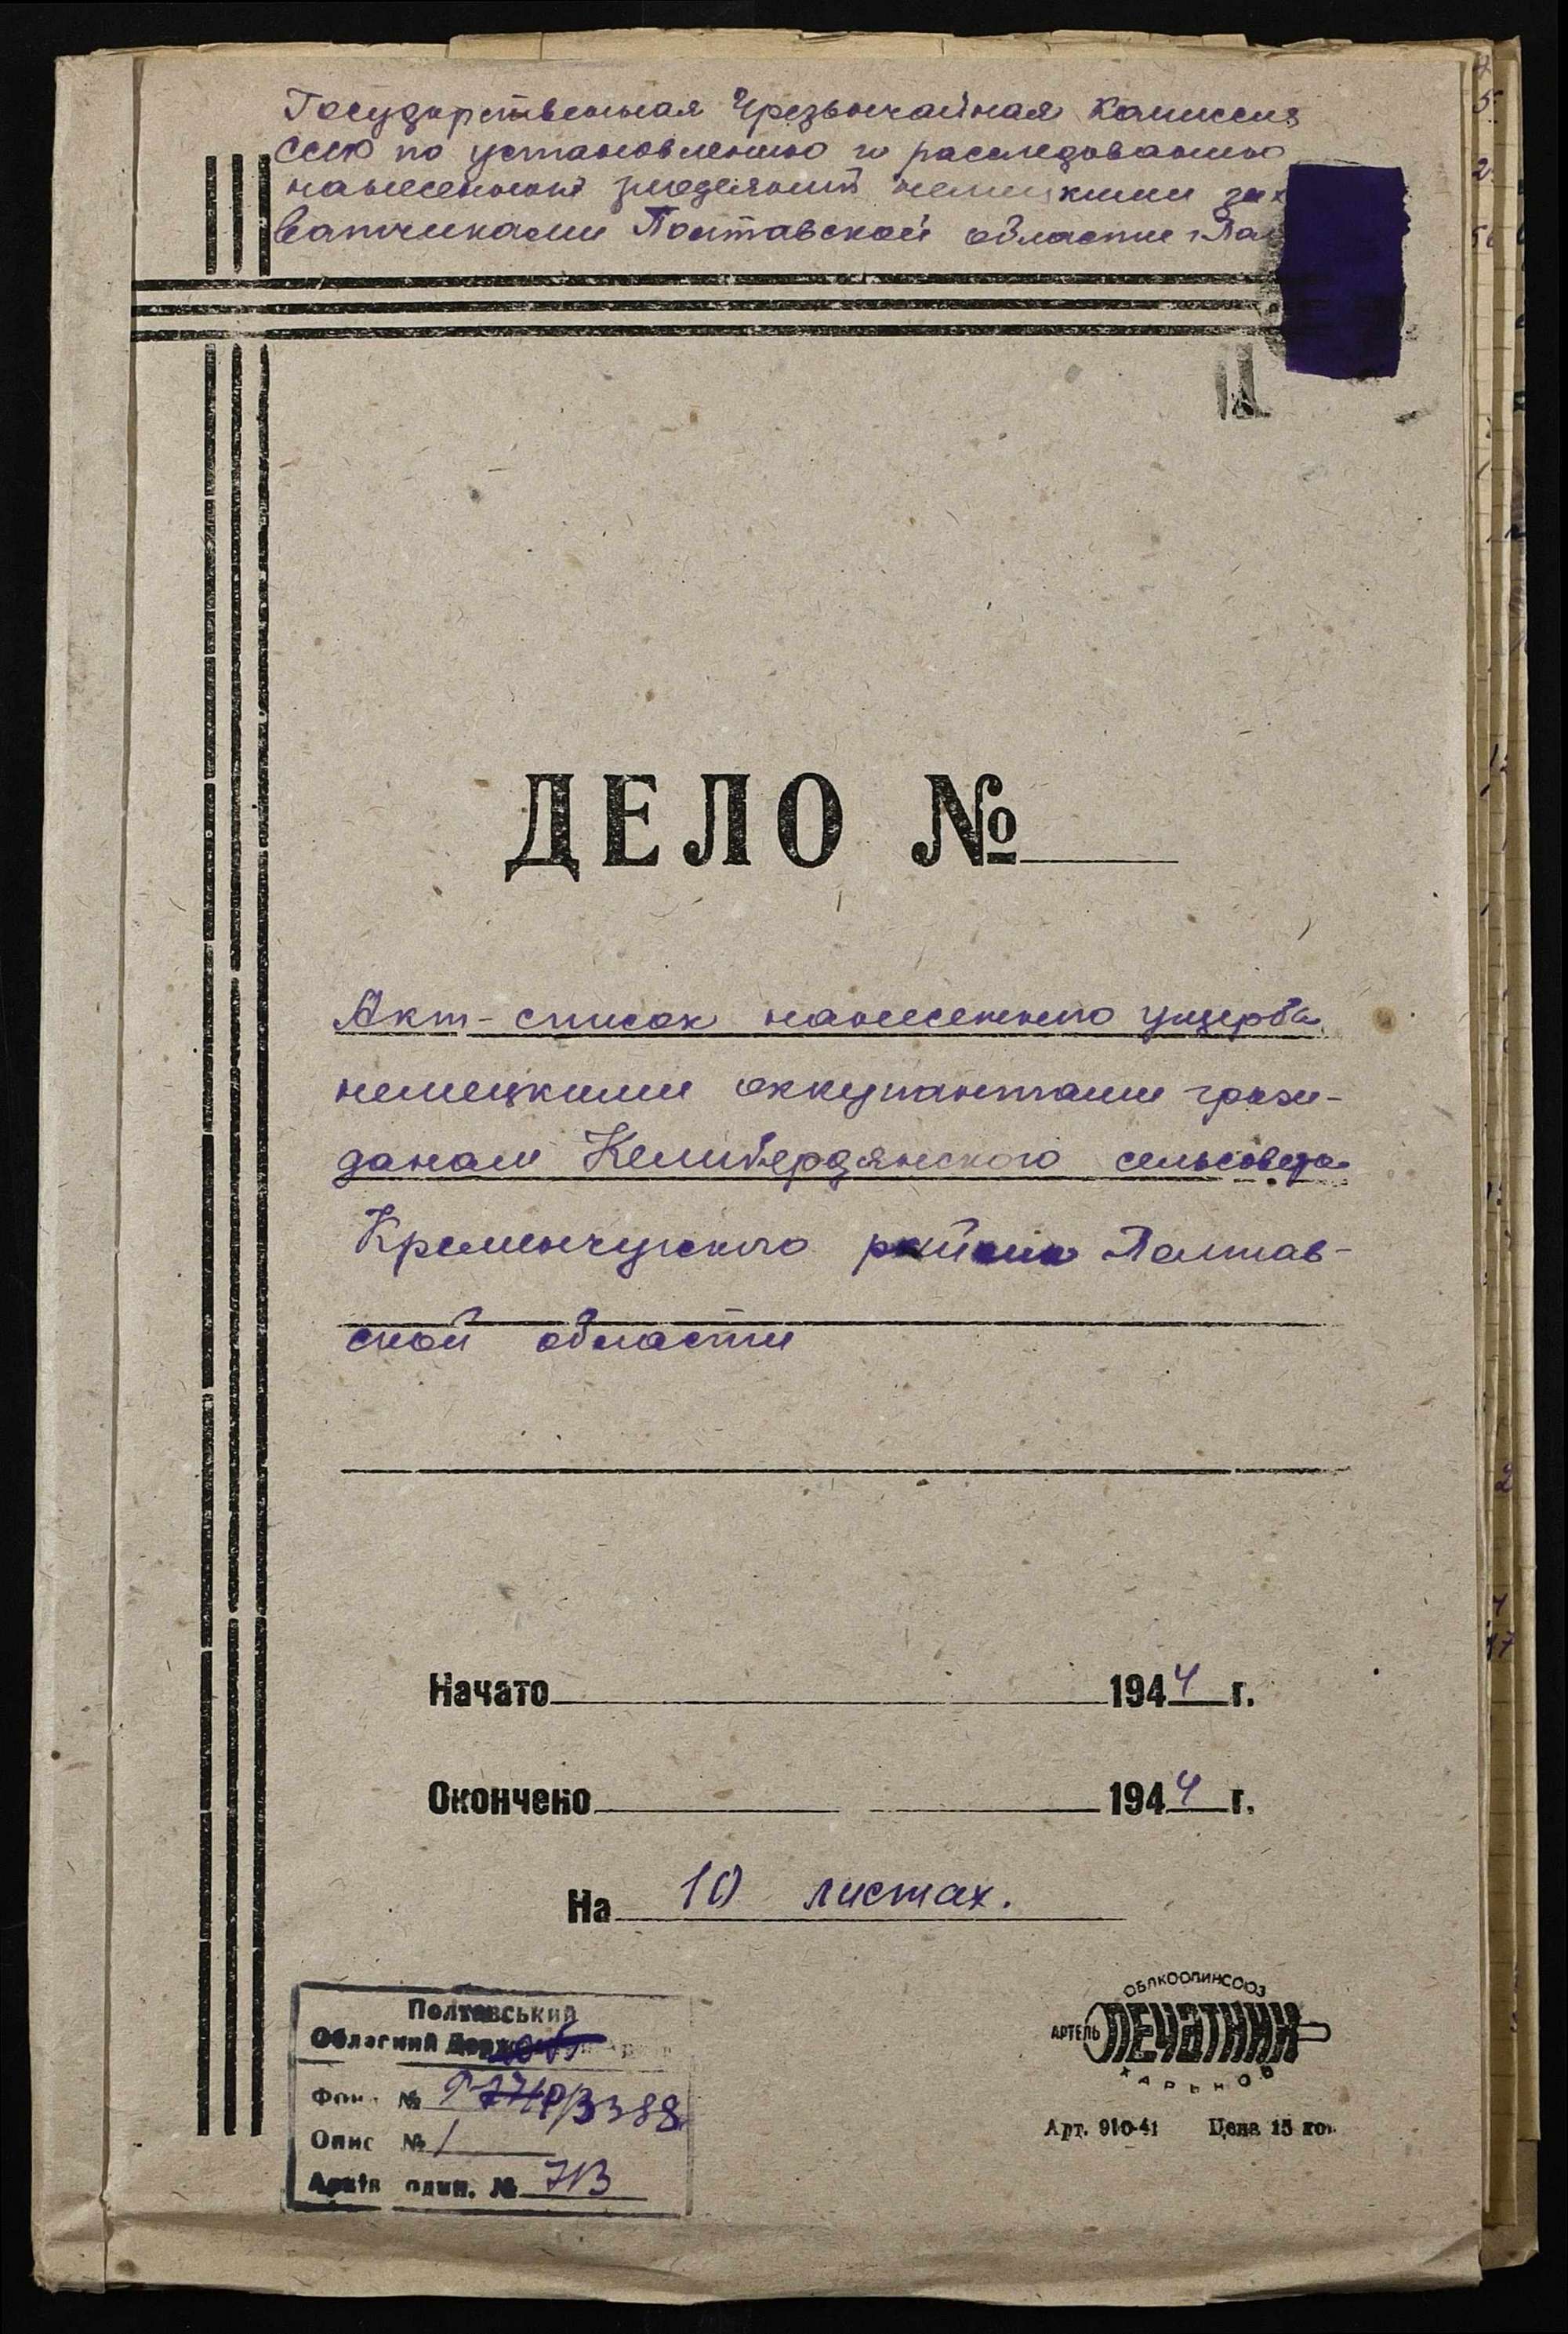 Государственная Чрезвычайная Комиссия
по установлению и расследованию
злодеяний немецкими зах
ватчиками Полтавской области
ДЕЛО №
Акт-список нанесенного ущерба
немецкими оккупантами граж-
данам Келибердянского сельсовета
Кременчугского района Полтав-
ской области
Начато 1944 г.
Окончено 1944 г.
На 10 листах.
Полтавський
Обласний
Фонд № 3388
Опис № 1
один. № 713
ОБЛКООПИНСОЮЗ
АРТЕЛЬ ПЕЧАТНИК
ХАРЬКОВ
Арт. 910-41 Цена 15 коп.